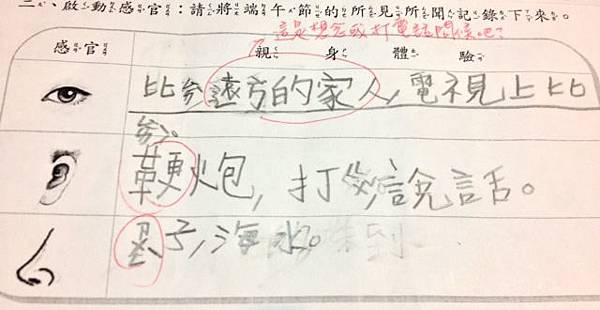 、啟動感官：請將端午節的所見所聞記錄下來。
這是想念或打電話問候吧？
感官 親身體驗
比 遠方的家人,電視上比
鞭炮,打 ,說話。
子,海水。